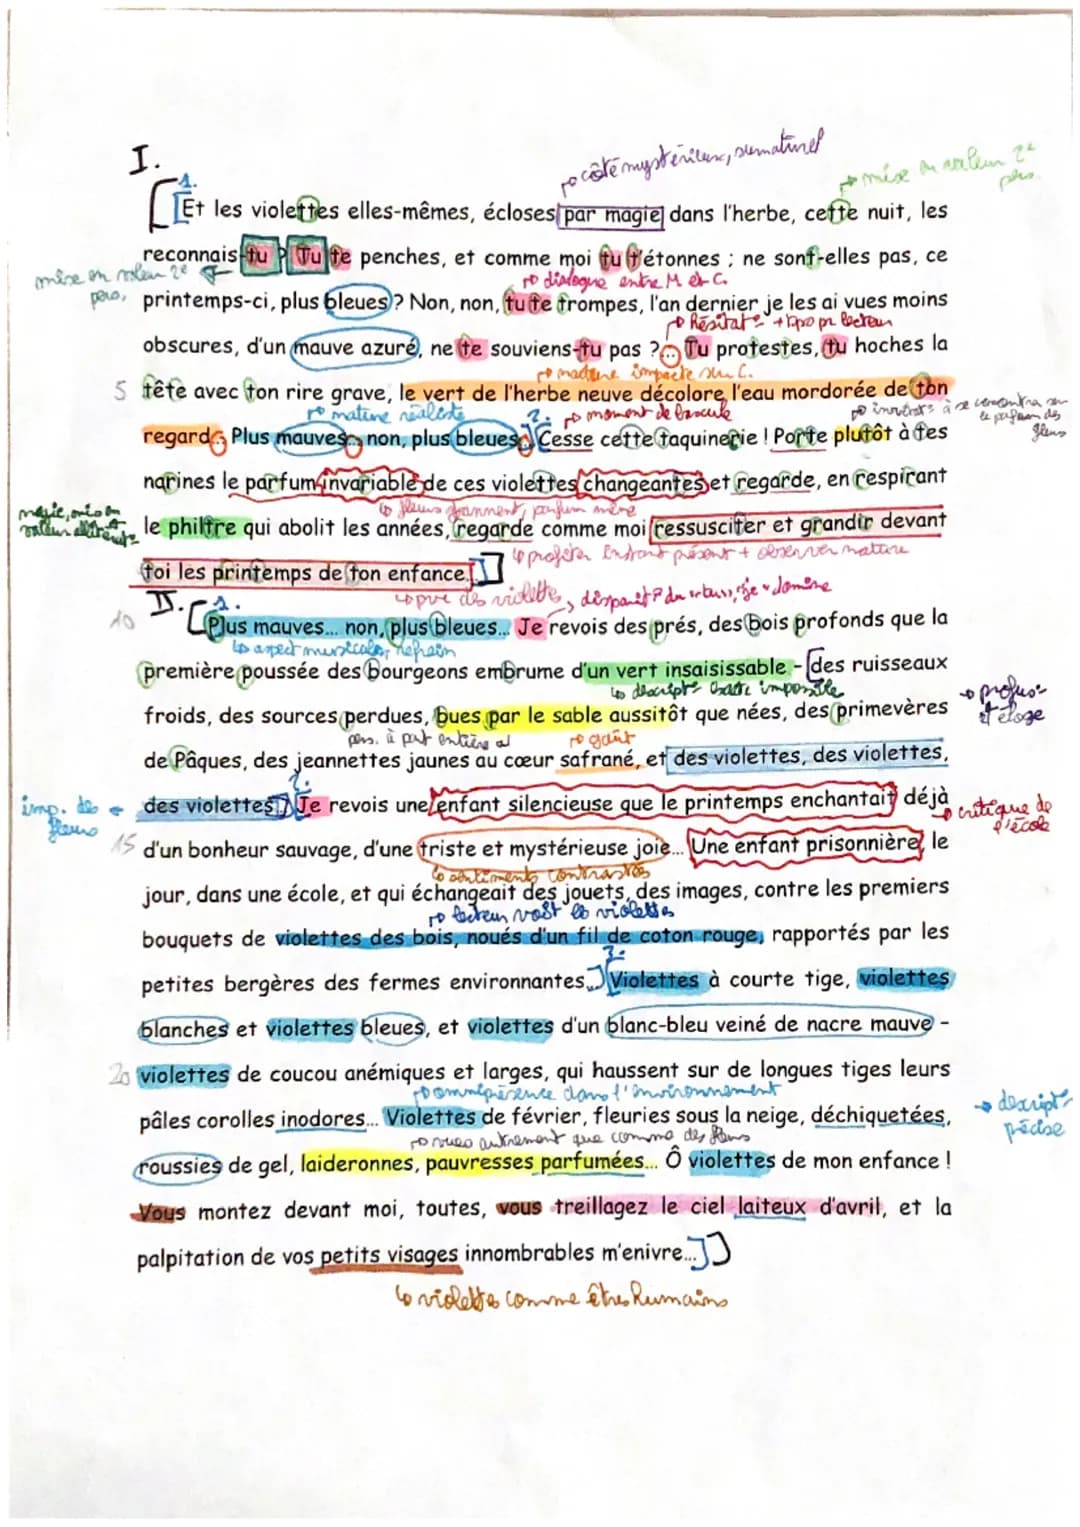 I.
côté mystérieux, surnaturel
mise en valeur 2e
pers.
1.
Et les violettes elles-mêmes, écloses par magie dans l'herbe, cette nuit, les
reconnais-tu ? Tu te penches, et comme moi tu t'étonnes ; ne sont-elles pas, ce
mise en valeur 2e
pers.
dialogue entre M et C.
printemps-ci, plus bleues ? Non, non, tu te trompes, l'an dernier je les ai vues moins
obscures, d'un mauve azuré, ne te souviens-tu pas ?... Tu protestes, tu hoches la
5 tête avec ton rire grave, le vert de l'herbe neuve décolore l'eau mordorée de ton
moment de bascule
2.
regard... Plus mauves... non, plus bleues... Cesse cette taquinerie ! Porte plutôt à tes
narines le parfum invariable de ces violettes changeantes et regarde, en respirant
parfum même
le philtre qui abolit les années, regarde comme moi ressusciter et grandir devant
profiter instant présent + observer nature
toi les printemps de ton enfance.
II.
1.
10
Plus mauves... non, plus bleues... Je revois des prés, des bois profonds que la
aspect musical, refrain
première poussée des bourgeons embrume d'un vert insaisissable – des ruisseaux
froids, des sources perdues, bues par le sable aussitôt que nées, des primevères
et éloge
pers. à part entière
goût
de Pâques, des jeannettes jaunes au cœur safrané, et des violettes, des violettes,
2.
imp. des
fleurs
des violettes... Je revois une enfant silencieuse que le printemps enchantait déjà
critique de
l'école
15 d'un bonheur sauvage, d'une triste et mystérieuse joie... Une enfant prisonnière, le
sentiments contrastés
jour, dans une école, et qui échangeait des jouets, des images, contre les premiers
lecteur voit les violettes
bouquets de violettes des bois, noués d'un fil de coton rouge, rapportés par les
3.
petites bergères des fermes environnantes... Violettes à courte tige, violettes
blanches et violettes bleues, et violettes d'un blanc-bleu veiné de nacre mauve –
20 violettes de coucou anémiques et larges, qui haussent sur de longues tiges leurs
omniprésence dans l'environnement
pâles corolles inodores... Violettes de février, fleuries sous la neige, déchiquetées,
descript°
précise
vues autrement que comme des fleurs
roussies de gel, laideronnes, pauvresses parfumées... Ô violettes de mon enfance !
Vous montez devant moi, toutes, vous treillagez le ciel laiteux d'avril, et la
palpitation de vos petits visages innombrables m'enivre...
violettes comme êtres humains